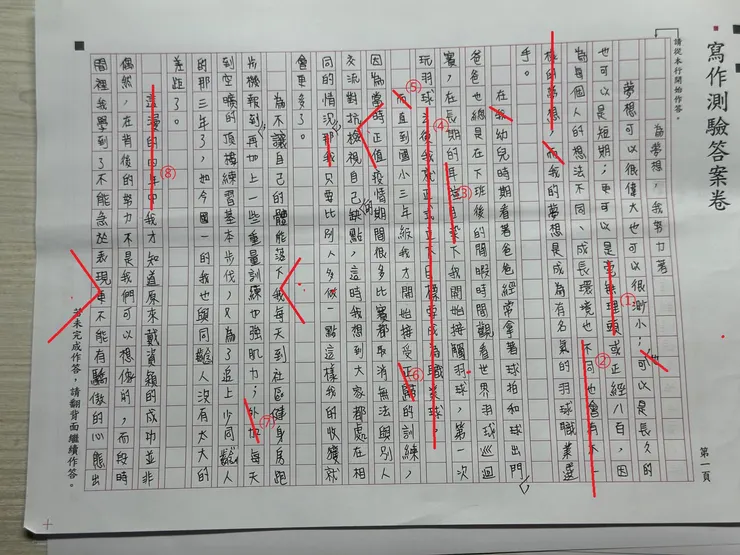 寫作測驗答案卷
第一頁
請從本行開始作答。
為夢想，我努力著
夢想可以很偉大也可以很渺小；可以是長久的
也可以是短期；更可以是毫無理頭或正經八百，因
為每個人的想法不同、成長環境也不同也會有不一
樣的夢想，而我的夢想是成為有名氣的羽球職業選
手。
在我幼兒時期看著爸爸經常拿著球拍和球出門
爸爸也總是在下班後的閒暇時間觀看世界羽球巡迴
賽，在長期的耳喧目染下我開始接觸羽球，第一次
玩羽球之後我就正式立下目標要成為職業球
而直到國小三年級我才開始接受正規的訓練，
因為當時正值疫情期間很多比賽都取消無法與別人
交流對抗檢視自己缺點，這時我想到大家都處在相
同的情況那我只要比別人多做一點這樣我的收獲就
會更多了。
為不讓自己的體能落下我每天到社區健身房跑
步機報到再加上一些重量訓練加強肌力；外加每天
到空曠的頂樓練習基本步伐，只為了追上少同齡人
的那三年了，如今國一的我也與同齡人沒有太大的
差距了。
這漫的四年中我才知道原來戴資穎的成功並非
偶然，在背後的努力不是我們可以想像的，而段時
間裡我學到了不能急於表現更不能有驕傲的心態出
若未完成作答，請翻背面繼續作答。
①
②
③
④
⑤
⑥
⑦
⑧